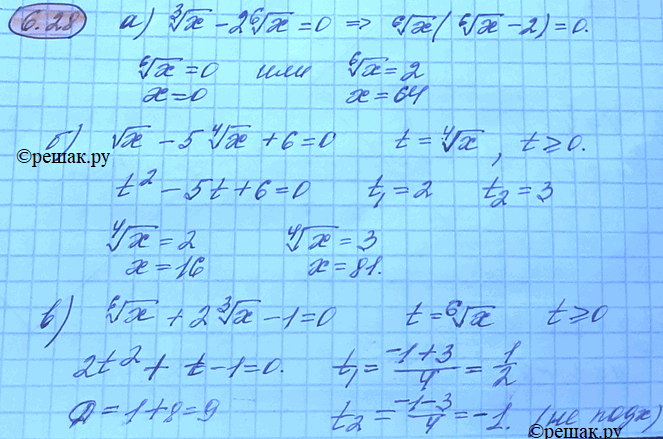 6.28 а) ∛x - 2⁶√x = 0 => ⁶√x(⁶√x - 2) = 0.
⁶√x = 0 или ⁶√x = 2
x = 0 x = 64
б) √x - 5⁴√x + 6 = 0 t = ⁴√x, t ≥ 0.
©решак.ру
t² - 5t + 6 = 0 t₁ = 2 t₂ = 3
⁴√x = 2 ⁴√x = 3
x = 16 x = 81.
©решак.ру
в) ⁶√x + 2∛x - 1 = 0 t = ⁶√x t ≥ 0
2t² + t - 1 = 0. t₁ = (-1+3)/4 = 1/2
D = 1 + 8 = 9 t₂ = (-1-3)/4 = -1. (не подх)
©решак.ру